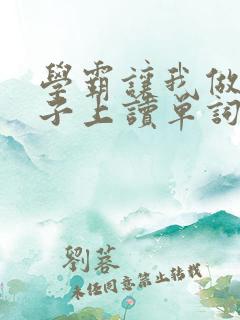 學霸讓我做
子上讀單詞
劉蓉
未经同意禁止转载